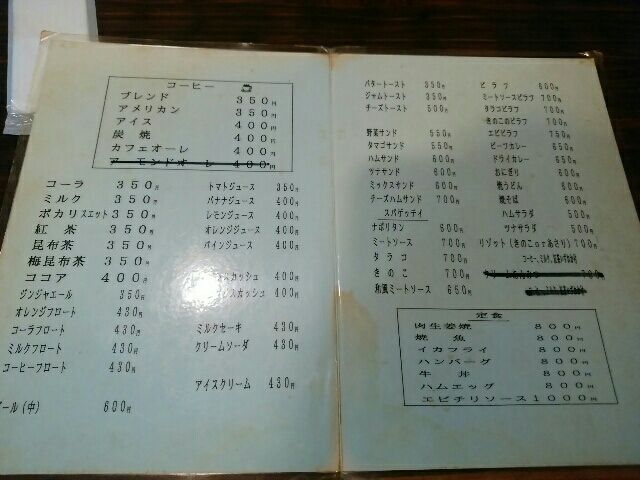 コーヒー
ブレンド 350円
アメリカン 350円
アイス 400円
炭焼 400円
カフェオーレ 400円
アーモンドオーレ 400円
コーラ 350円
ミルク 350円
ポカリスエット 350円
紅茶 350円
昆布茶 350円
梅昆布茶 350円
ココア 400円
ジンジャエール 350円
オレンジフロート 430円
コーラフロート 430円
ミルクフロート 430円
コーヒーフロート 430円
ール(中) 600円
トマトジュース 350円
バナナジュース 400円
レモンジュース 400円
オレンジジュース 400円
パインジュース 400円
スカッシュ 400円
スカッシュ 400円
ミルクセーキ 430円
クリームソーダ 430円
アイスクリーム 430円
バタートースト 350円
ジャムトースト 350円
チーズトースト 500円
野菜サンド 550円
タマゴサンド 550円
ハムサンド 600円
ツナサンド 600円
ミックスサンド 600円
チーズハムサンド 700円
スパゲッティ
ナポリタン 600円
ミートソース 700円
タラコ 700円
きのこ 700円
和風ミートソース 650円
ピラフ 600円
ミートソースピラフ 700円
タラコピラフ 700円
きのこのピラフ 700円
エビピラフ 750円
ビーフカレー 700円
ドライカレー 650円
おにぎり 600円
焼うどん 600円
焼そば 600円
ハムサラダ 500円
ツナサラダ 500円
リゾット(きのこorあさり) 700円
定食
肉生姜焼 800円
焼魚 800円
イカフライ 800円
ハンバーグ 800円
牛丼 800円
ハムエッグ 800円
エビチリソース 1000円